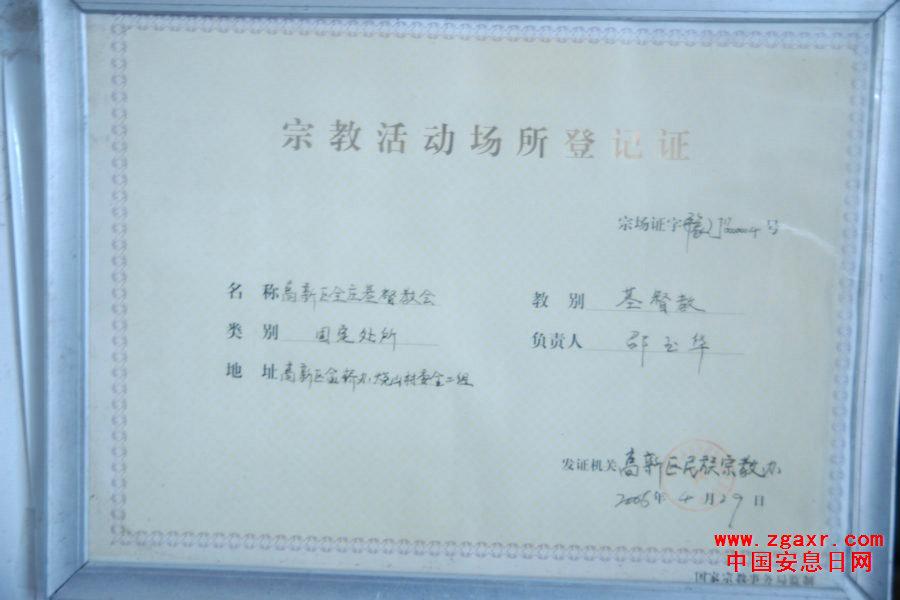 宗教活动场所登记证
宗场证字 号
名 称 高新区全庄基督教会
教 别 基督教
类 别 固定处所
负责人 邵玉华
地 址 高新区金桥办 山村委全二组
发证机关 高新区民族宗教办
2006年4月29日
www.zgaxr.com
中国安息日网
国家宗教事务局监制